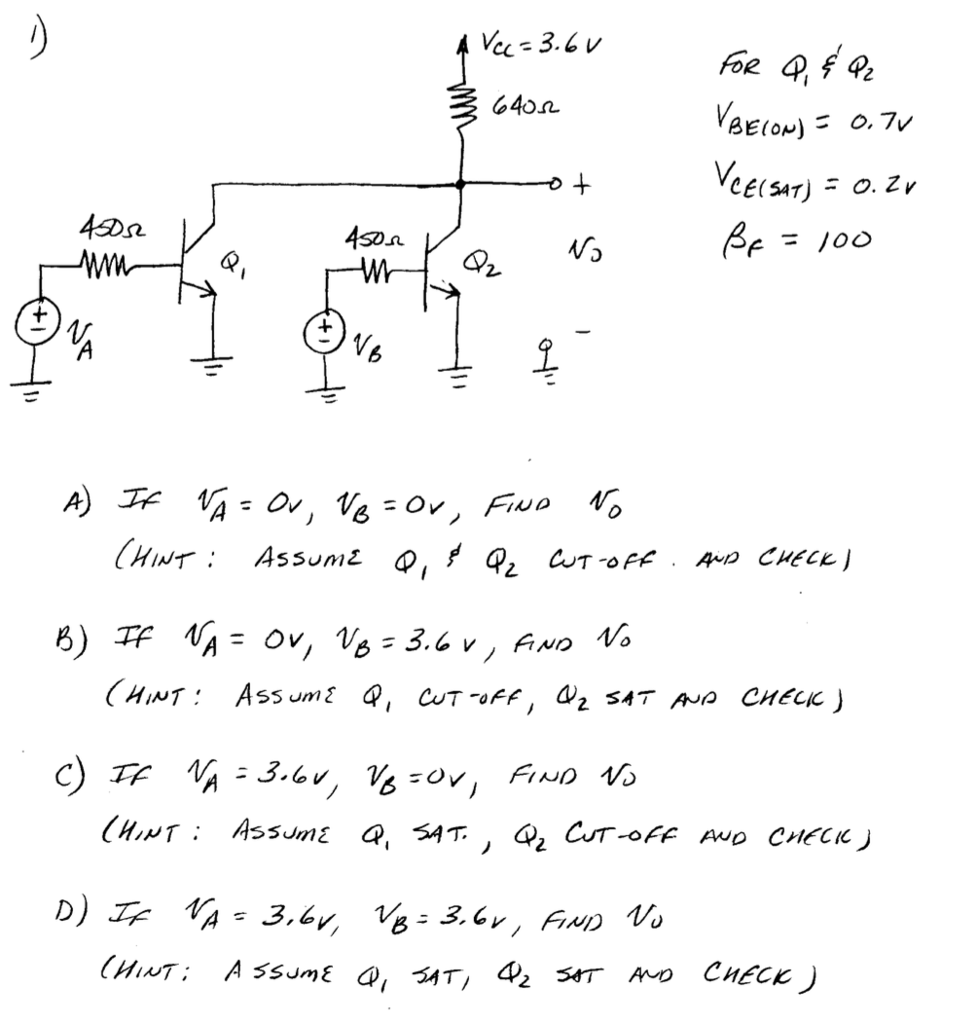 1)
VCC = 3.6 V
640Ω
FOR Q1 & Q2
VBE(ON) = 0.7V
VCE(SAT) = 0.2V
βF = 100
450Ω
Q1
+
VA
450Ω
Q2
+
VB
+
VO
-
A) IF VA = 0V, VB = 0V, FIND VO
(HINT : ASSUME Q1 & Q2 CUT-OFF. AND CHECK)
B) IF VA = 0V, VB = 3.6 V, FIND VO
(HINT : ASSUME Q1 CUT-OFF, Q2 SAT AND CHECK)
C) IF VA = 3.6V, VB = 0V, FIND VO
(HINT : ASSUME Q1 SAT., Q2 CUT-OFF AND CHECK)
D) IF VA = 3.6V, VB = 3.6V, FIND VO
(HINT : ASSUME Q1 SAT, Q2 SAT AND CHECK)